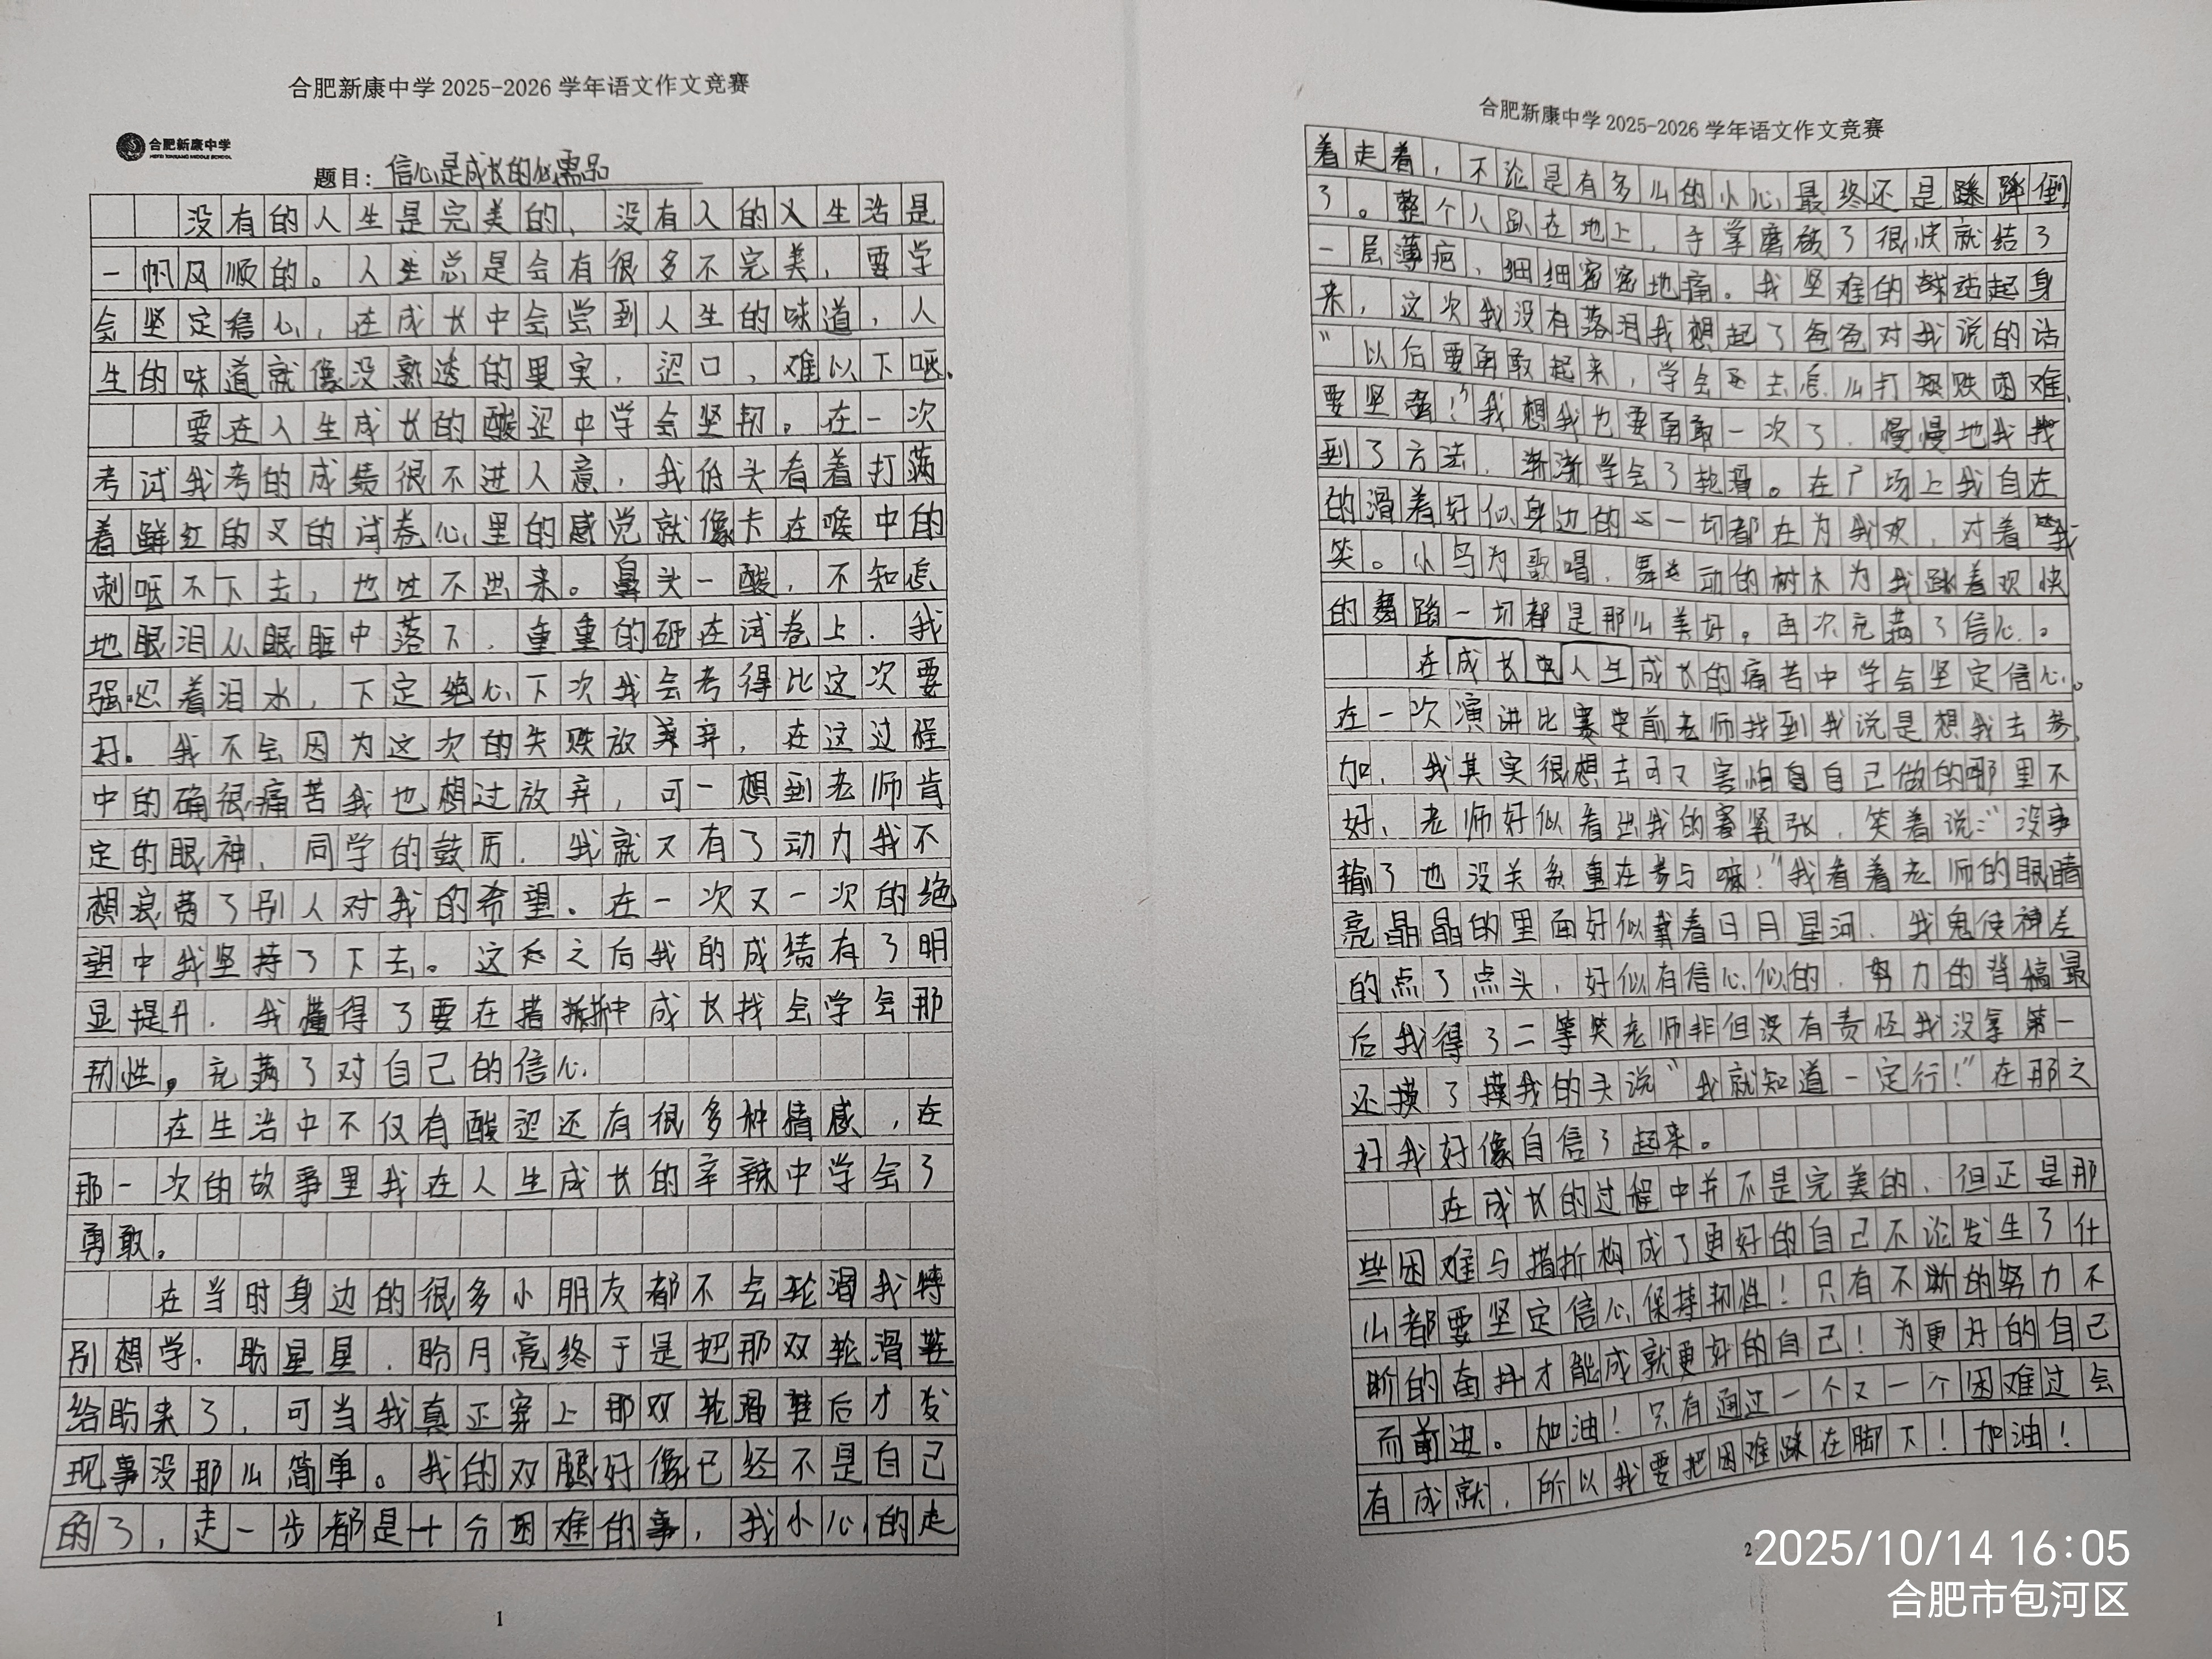 合肥新康中学 2025-2026 学年语文作文竞赛
合肥新康中学
HEFEI XINKANG MIDDLE SCHOOL
题目：信心是成长的必需品
没有的人生是完美的、没有人的人生活是
一帆风顺的。人生总是会有很多不完美，要学
会坚定信心，在成长中会尝到人生的味道，人
生的味道就像没熟透的果实，涩口，难以下咽。
要在人生成长的酸涩中学会坚韧。在一次
考试我考的成绩很不进人意，我低头看着打满
着鲜红的叉的试卷心里的感觉就像卡在喉中的
刺咽不下去，也吐不出来。鼻头一酸，不知怎
地眼泪从眼眶中落下，重重的砸在试卷上．我
强忍着泪水，下定绝心下次我会考得比这次要
好。我不会因为这次的失败放弃，在这过程
中的确很痛苦我也想过放弃，可一想到老师肯
定的眼神、同学的鼓历．我就又有了动力我不
想浪费了别人对我的希望。在一次又一次的绝
望中我坚持了下去。这之后我的成绩有了明
显提升．我懂得了要在措折中成长找会学会那
韧性。充满了对自己的信心
在生活中不仅有酸涩还有很多种情感，在
那一次的故事里我在人生成长的辛辣中学会了
勇敢。
在当时身边的很多小朋友都不会轮滑我特
别想学、盼星星．盼月亮终于是把那双轮滑鞋
给盼来了，可当我真正穿上那双轮滑鞋后才发
现事没那么简单。我的双腿好像已经不是自己
的了，走一步都是十分困难的事，我小心的走
1
合肥新康中学 2025-2026 学年语文作文竞赛
着走着，不论是有多么的小心最终还是摔倒
了。整个人趴在地上，手掌磨破了很快就结了
一层薄疤，细细密密地痛。我坚难的站起身
来，这次我没有落泪我想起了爸爸对我说的话
“以后要勇敢起来，学会去怎么打败困难、
要坚强！”我想我也要勇敢一次了．慢慢地我找
到了方法．渐渐学会了轮滑。在广场上我自在
的滑着好似身边的一切都在为我欢，对着我
笑。小鸟为歌唱．舞动的树木为我跳着欢快
的舞蹈一切都是那么美好。再次充满了信心。
在成长中人生成长的痛苦中学会坚定信心。
在一次演讲比赛前老师找到我说是想我去参
加．我其实很想去可又害怕自己做的哪里不
好、老师好似看出我的紧张．笑着说：“没事
输了也没关系重在参与嘛！”我看着老师的眼睛
亮晶晶的里面好似载着日月星河．我鬼使神差
的点了点头，好似有信心似的．努力的背稿最
后我得了二等奖老师非但没有责怪我没拿第一
还摸了摸我的头说“我就知道一定行！”在那之
好我好像自信了起来。
在成长的过程中并不是完美的、但正是那
些困难与措折构成了更好的自己不论发生了什
么都要坚定信心保持韧性！只有不断的努力不
断的奋抖才能成就更好的自己！为更好的自己
而前进。加油！只有通过一个又一个困难过会
有成就，所以我要把困难踩在脚下！加油！
2
2025/10/14 16:05
合肥市包河区